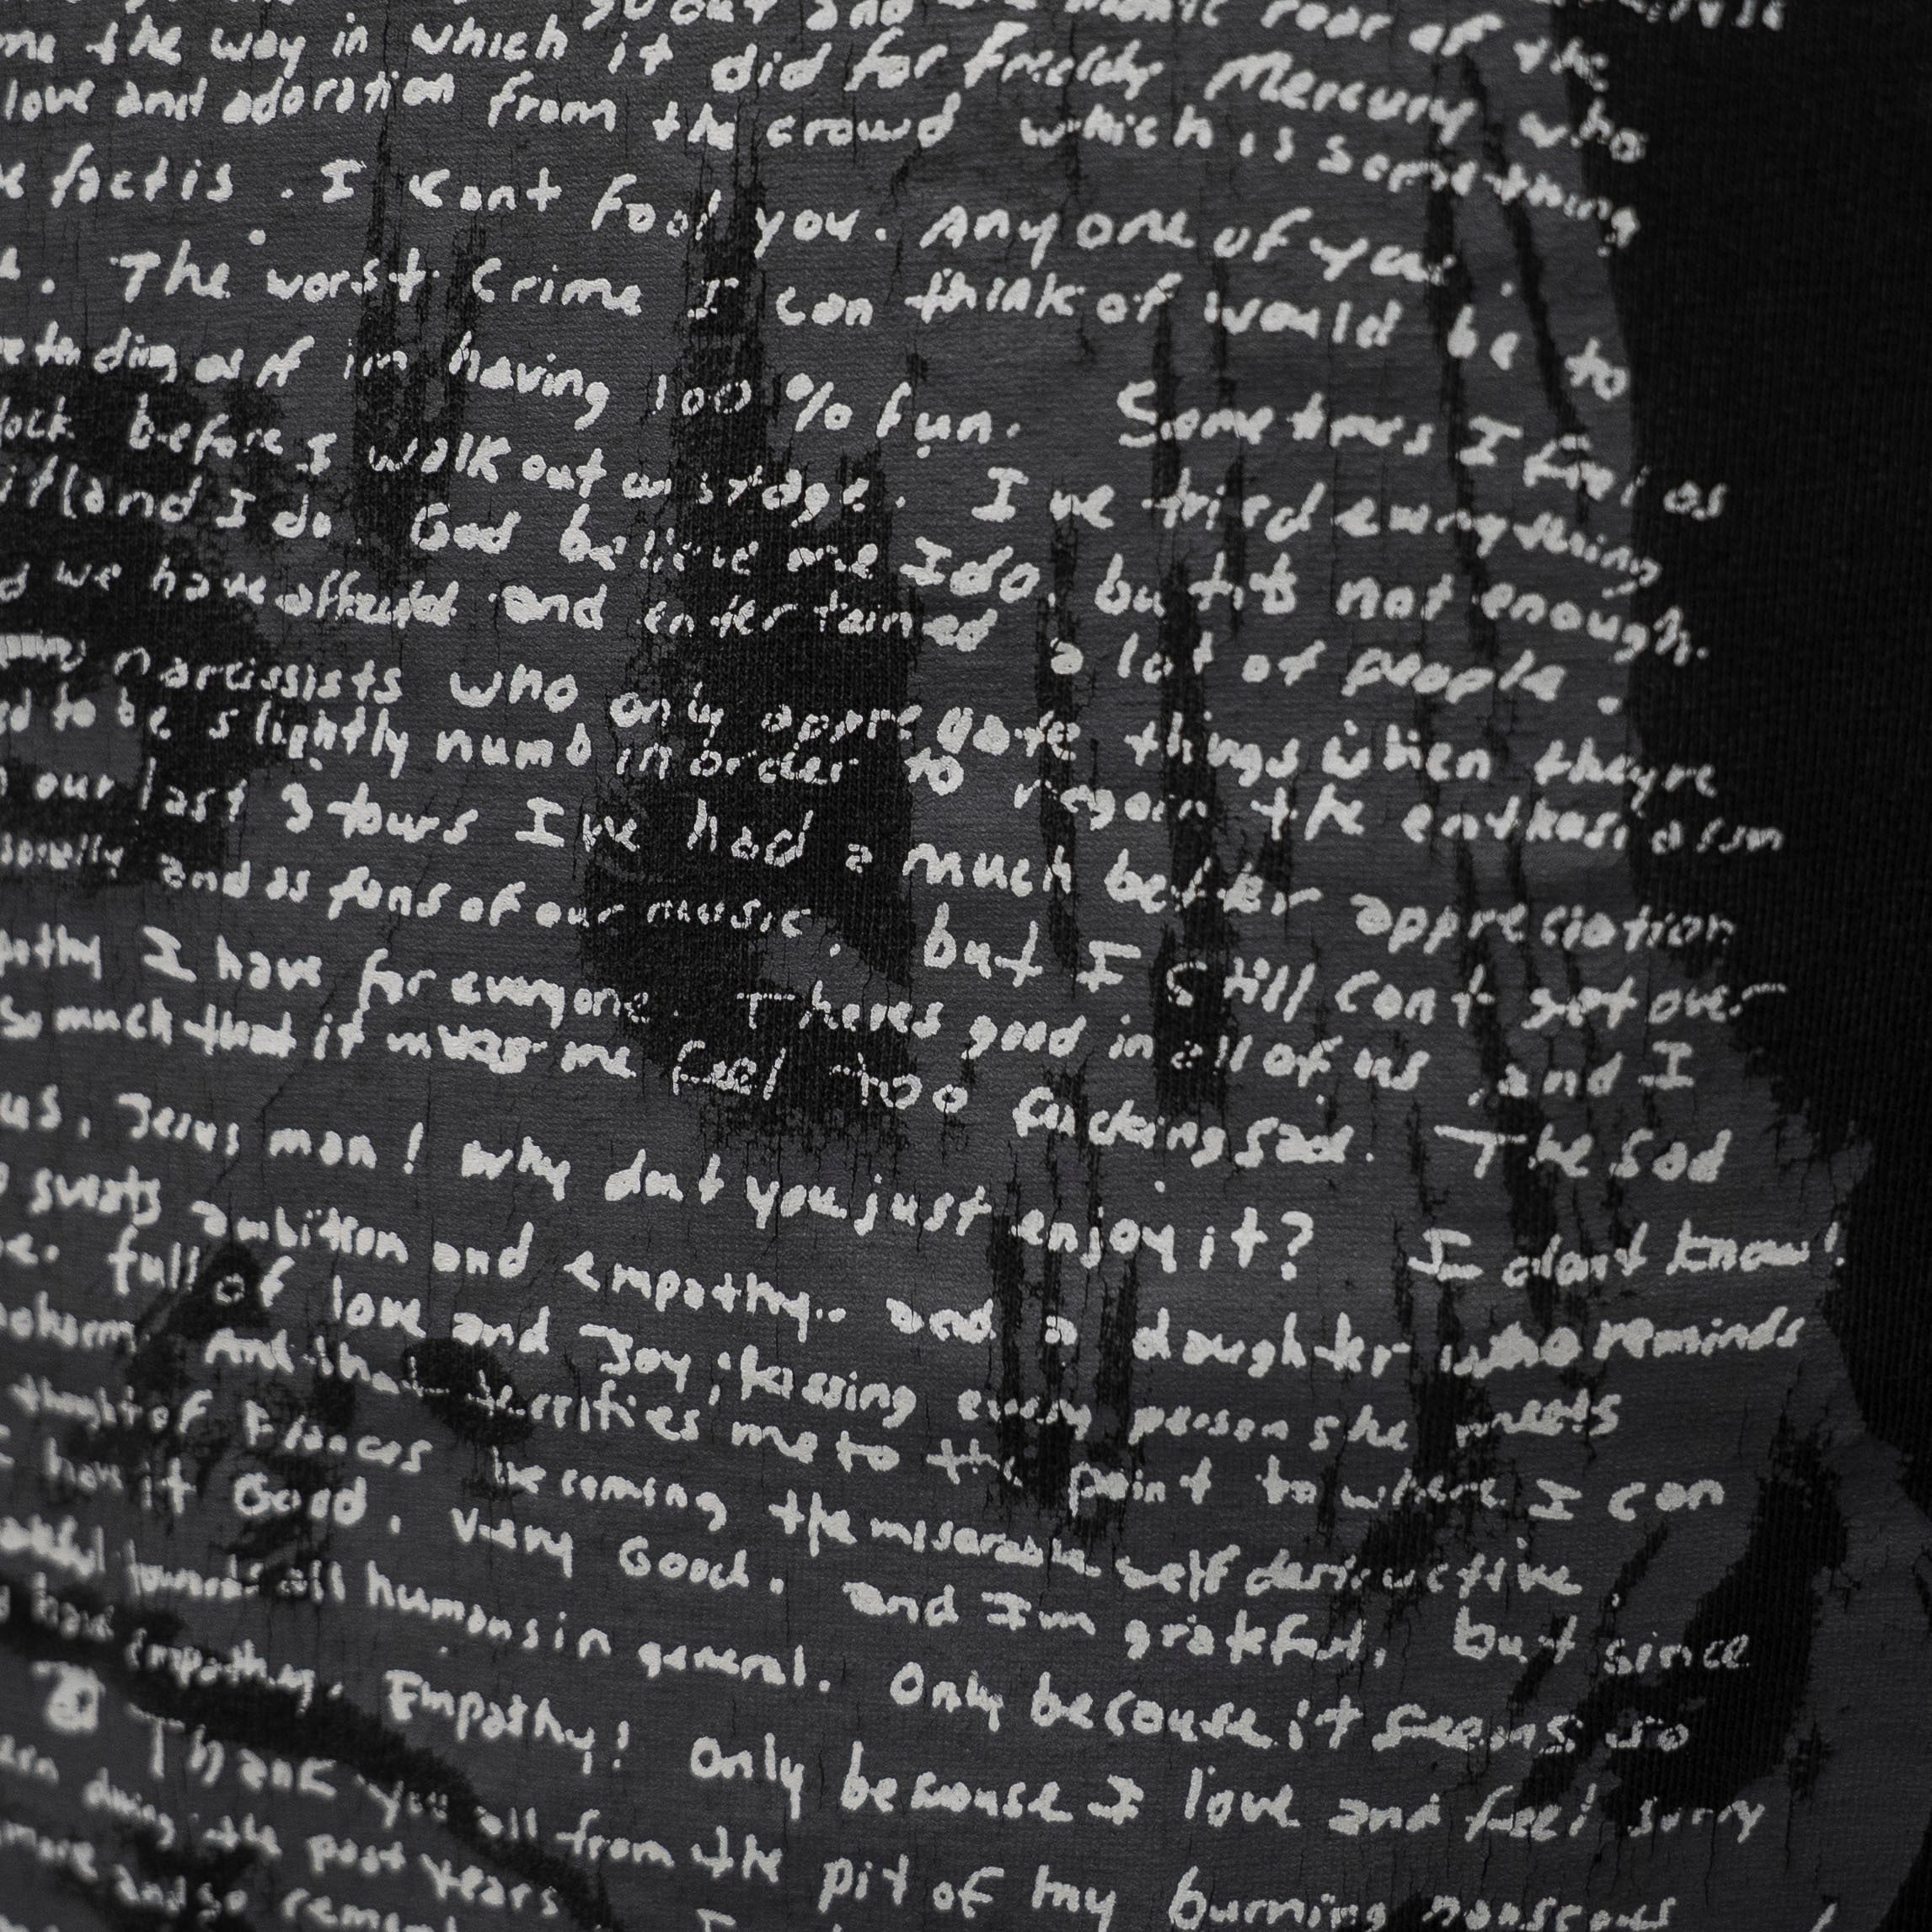 out and the manic roar of the
me the way in which it did for Freddy Mercury who
love and adoration from the crowd which is something
fact is. I cant fool you. Any one of you.
The worst crime I can think of would be to
pretending as if im having 100% fun. Sometimes I feel as
lock before I walk out on stage. I've tried everything
it (and I do. God believe me I do, but its not enough.
we have affected and entertained a lot of people.
narcissists who only appreciate things when theyre
to be slightly numb in order to regain the enthusiasm
our last 3 tours I've had a much better appreciation
and as fans of our music, but I still cant get over
I have for everyone. Theres good in all of us and I
so much that it makes me feel too fucking sad. The sad
us, Jesus man! why dont you just enjoy it? I dont know!
sweats ambition and empathy.. and a daughter who reminds
full of love and Joy, kissing every person she meets
harm. And that terrifies me to the point to where I can
thought of Frances becoming the miserable self destructive,
have it Good, very Good. and I'm grateful, but since
towards all humans in general. Only because it seems so
have empathy. Empathy! Only because I love and feel sorry
Thank you all from the pit of my burning nauseous
during the past years
more and so remember